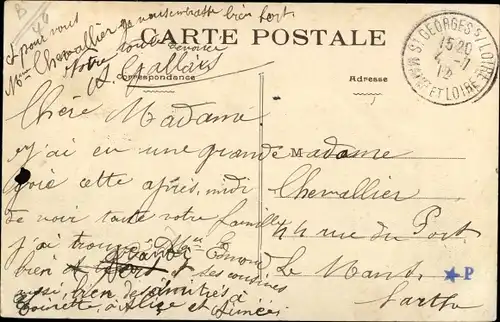 B
44
et pour vous
Mme Chevallier je
bien fort
Votre toute dévouée
A. Gallais
CARTE POSTALE
Correspondance
Adresse
ST GEORGES S/ LOIRE
15 20
4 - 7
12
MAINE ET LOIRE
Chère Madame
J'ai eu une grande
joie cette après midi
de voir toute votre famille
j'ai trouvé Mr Edmond
bien et ses cousines
aussi, bien des amitiés à
Toinette, à Alice et Aimée
M adame
Chevallier
44 rue du Port
Le Mans
Sarthe
P